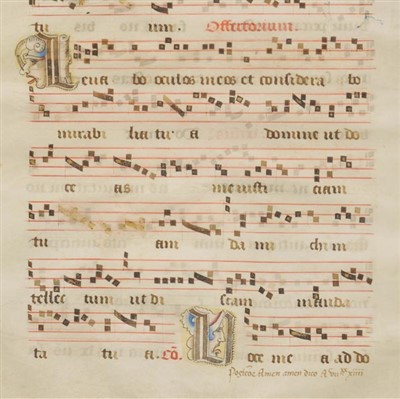 tu um. Offertorium.
Leua bo oculos meos et considera bo
mirabi lia tu a domine ut do
ce as me iusti ciam
tu am da mi chi in
tellec tum ut di scam manda
ta tu a. Cō. Voce me a ad do
Amen amen dico